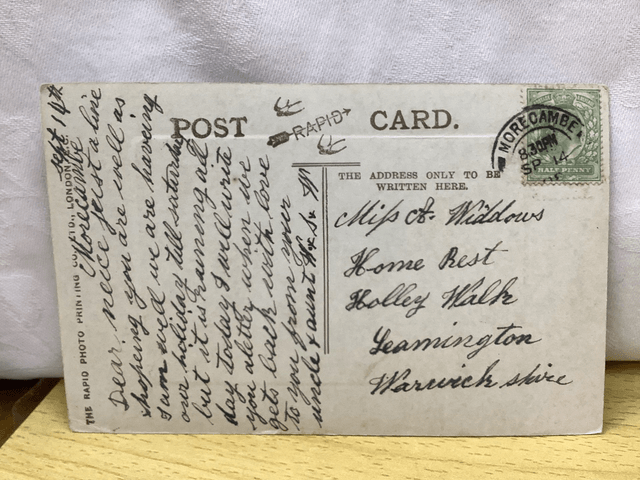 POST CARD.
RAPID
THE ADDRESS ONLY TO BE
WRITTEN HERE.
MORECAMBE
8.30PM
SP 14
HALF PENNY
THE RAPID PHOTO PRINTING CO., LTD., LONDON, E.C.
Sept 14th
Morecambe
Dear neice Just a line
hopeing you are well as
I am well we are haveing
our holiday till saturday
but it is raining all
day today I will write
you aletter when we
gets back with love
to you from your
uncle & aunt
Miss A. Widdows
Home Rest
Holley Walk
Leamington
Warwick shire